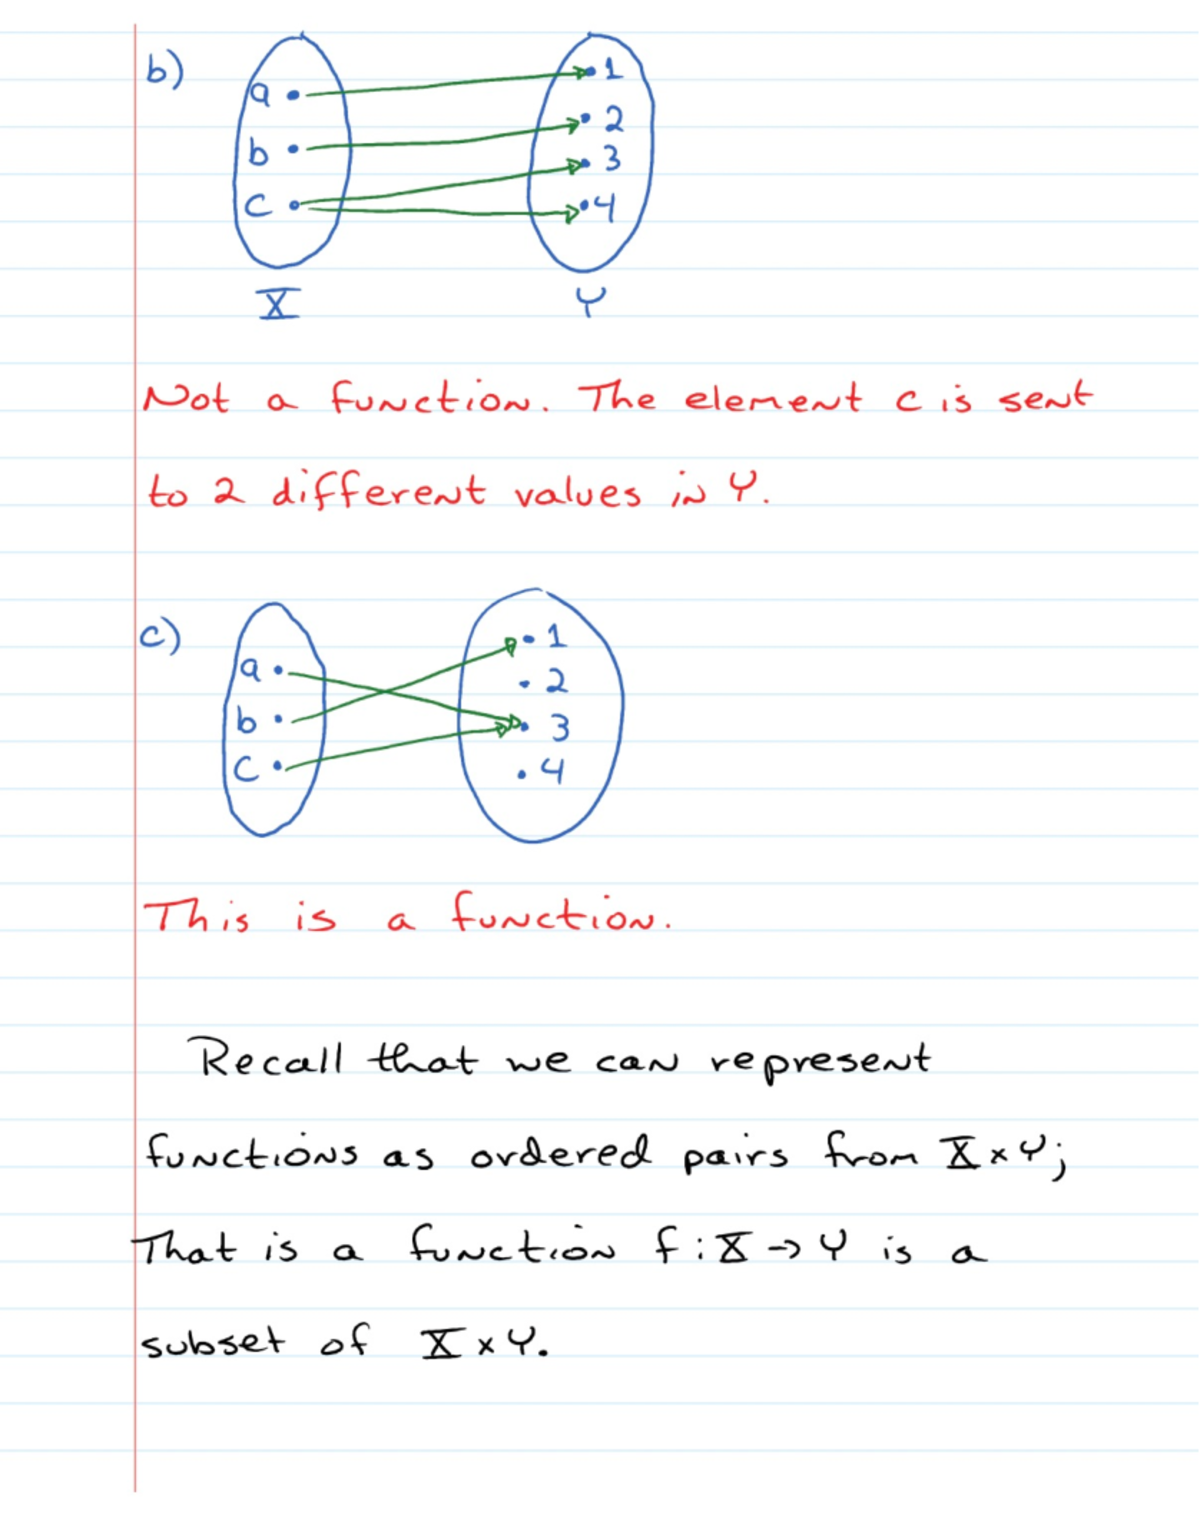 b)
a 1
b 2
c 3
4
X Y
Not a function. The element c is sent
to 2 different values in Y.
c)
a 1
b 2
c 3
4
This is a function.
Recall that we can represent
functions as ordered pairs from X × Y;
That is a function f : X → Y is a
subset of X × Y.